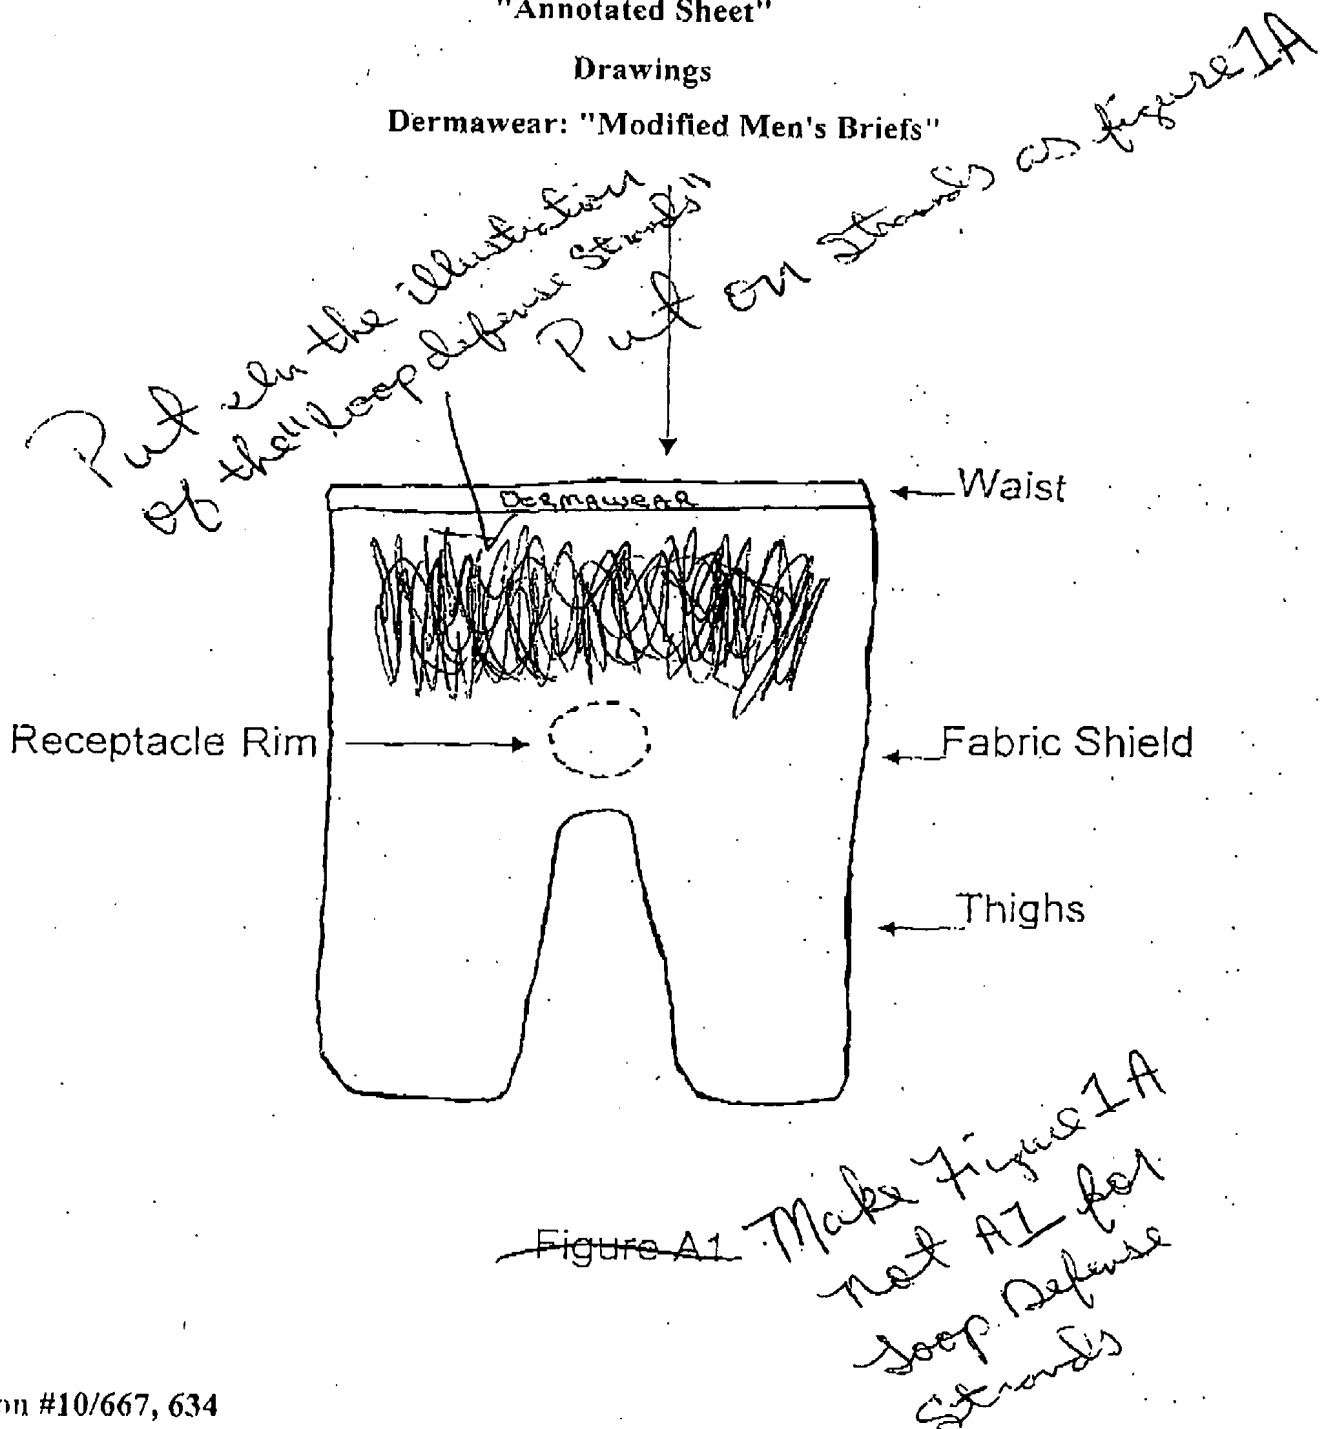 "Annotated Sheet"
Drawings
Dermawear: "Modified Men's Briefs"
Put in the illustration
of the "loop defense Strands"
Put on Strands as figure 1A
Waist
DERMAWEAR
Receptacle Rim
Fabric Shield
Thighs
Figure A1
Make Figure 1A
not A1 for
Loop Defense
Strands
on #10/667, 634